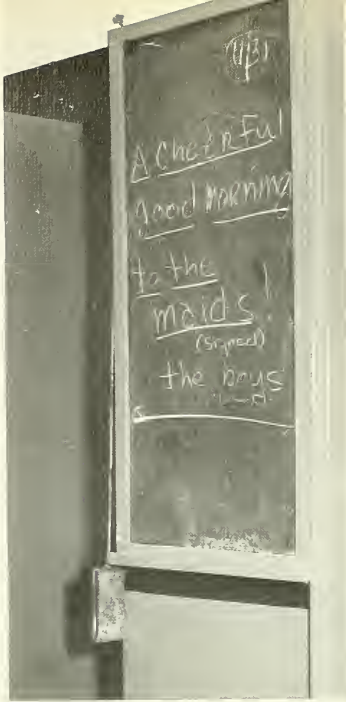 A CheerFul
good morning
to the
maids!
(signed)
the boys